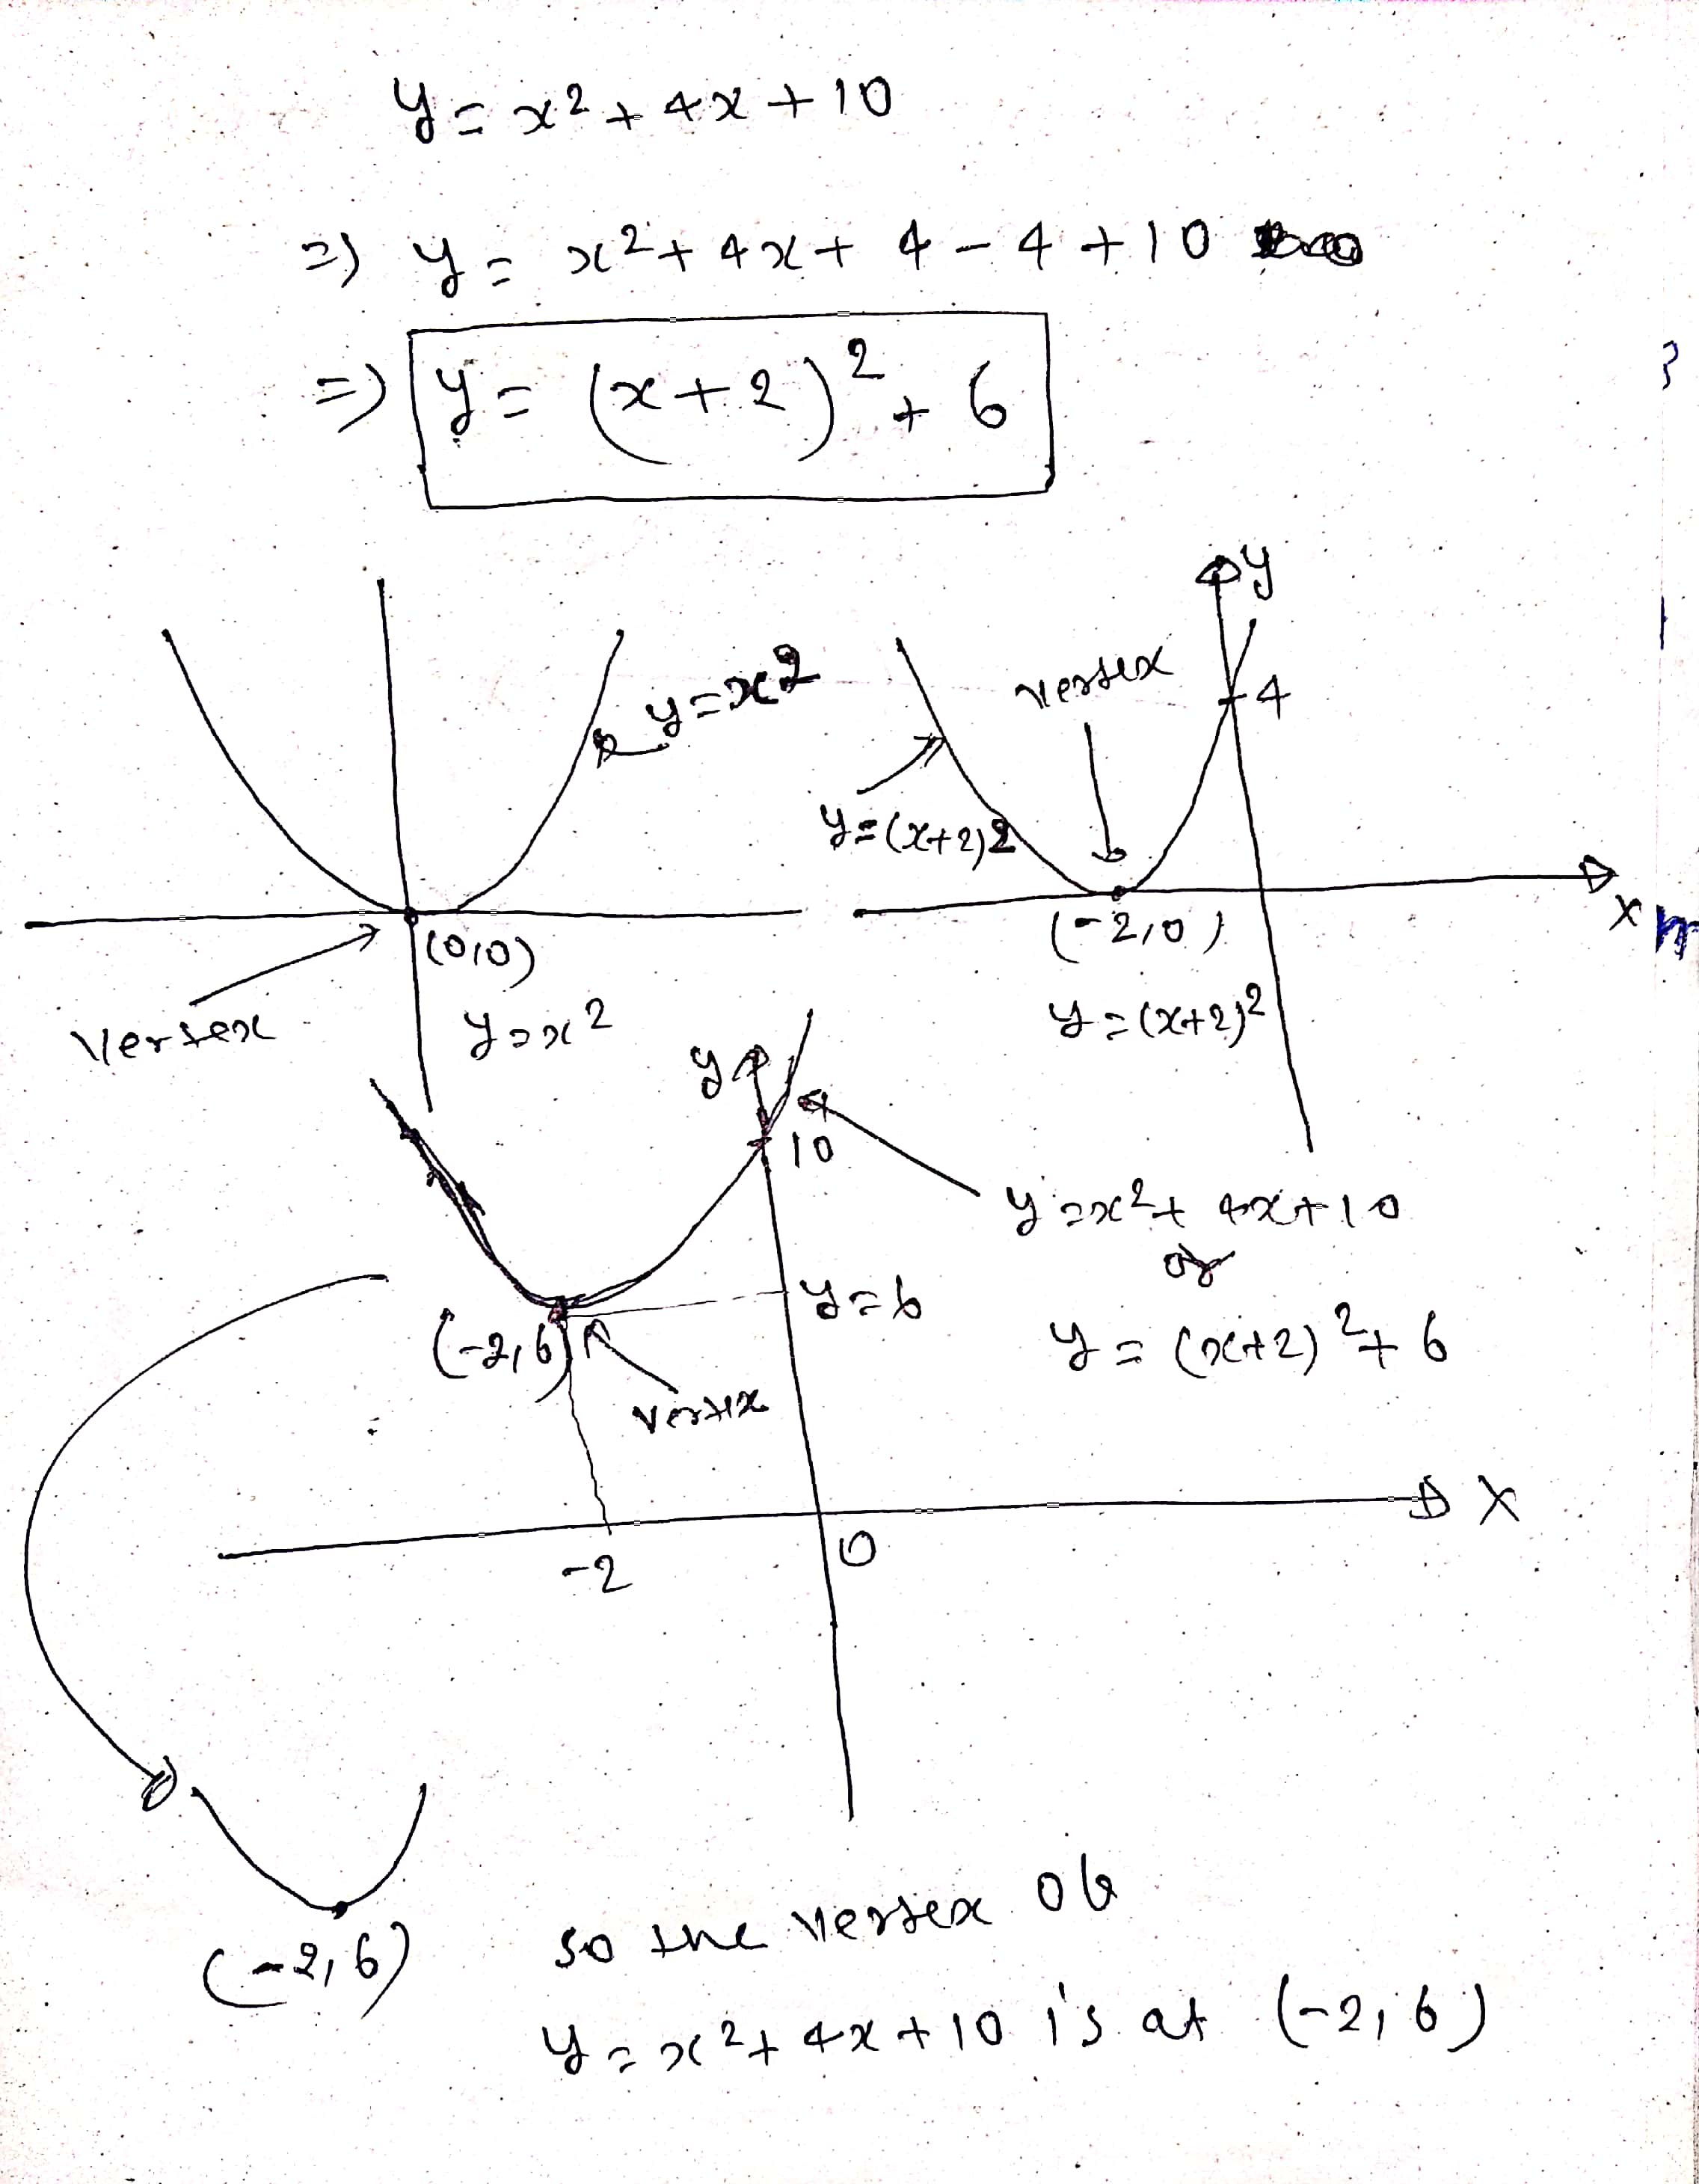 y = x² + 4x + 10
=) y = x² + 4x + 4 - 4 + 10
=) y = (x+2)² + 6
y
y=x²
vertex
4
y=(x+2)²
(0,0)
(-2,0)
x
vertex
y=x²
y=(x+2)²
y
10
y=x²+4x+10
or
y=6
y = (x+2)² + 6
(-2,6)
vertex
X
-2
0
(-2,6)
so the vertex of
y=x²+4x+10 is at (-2,6)